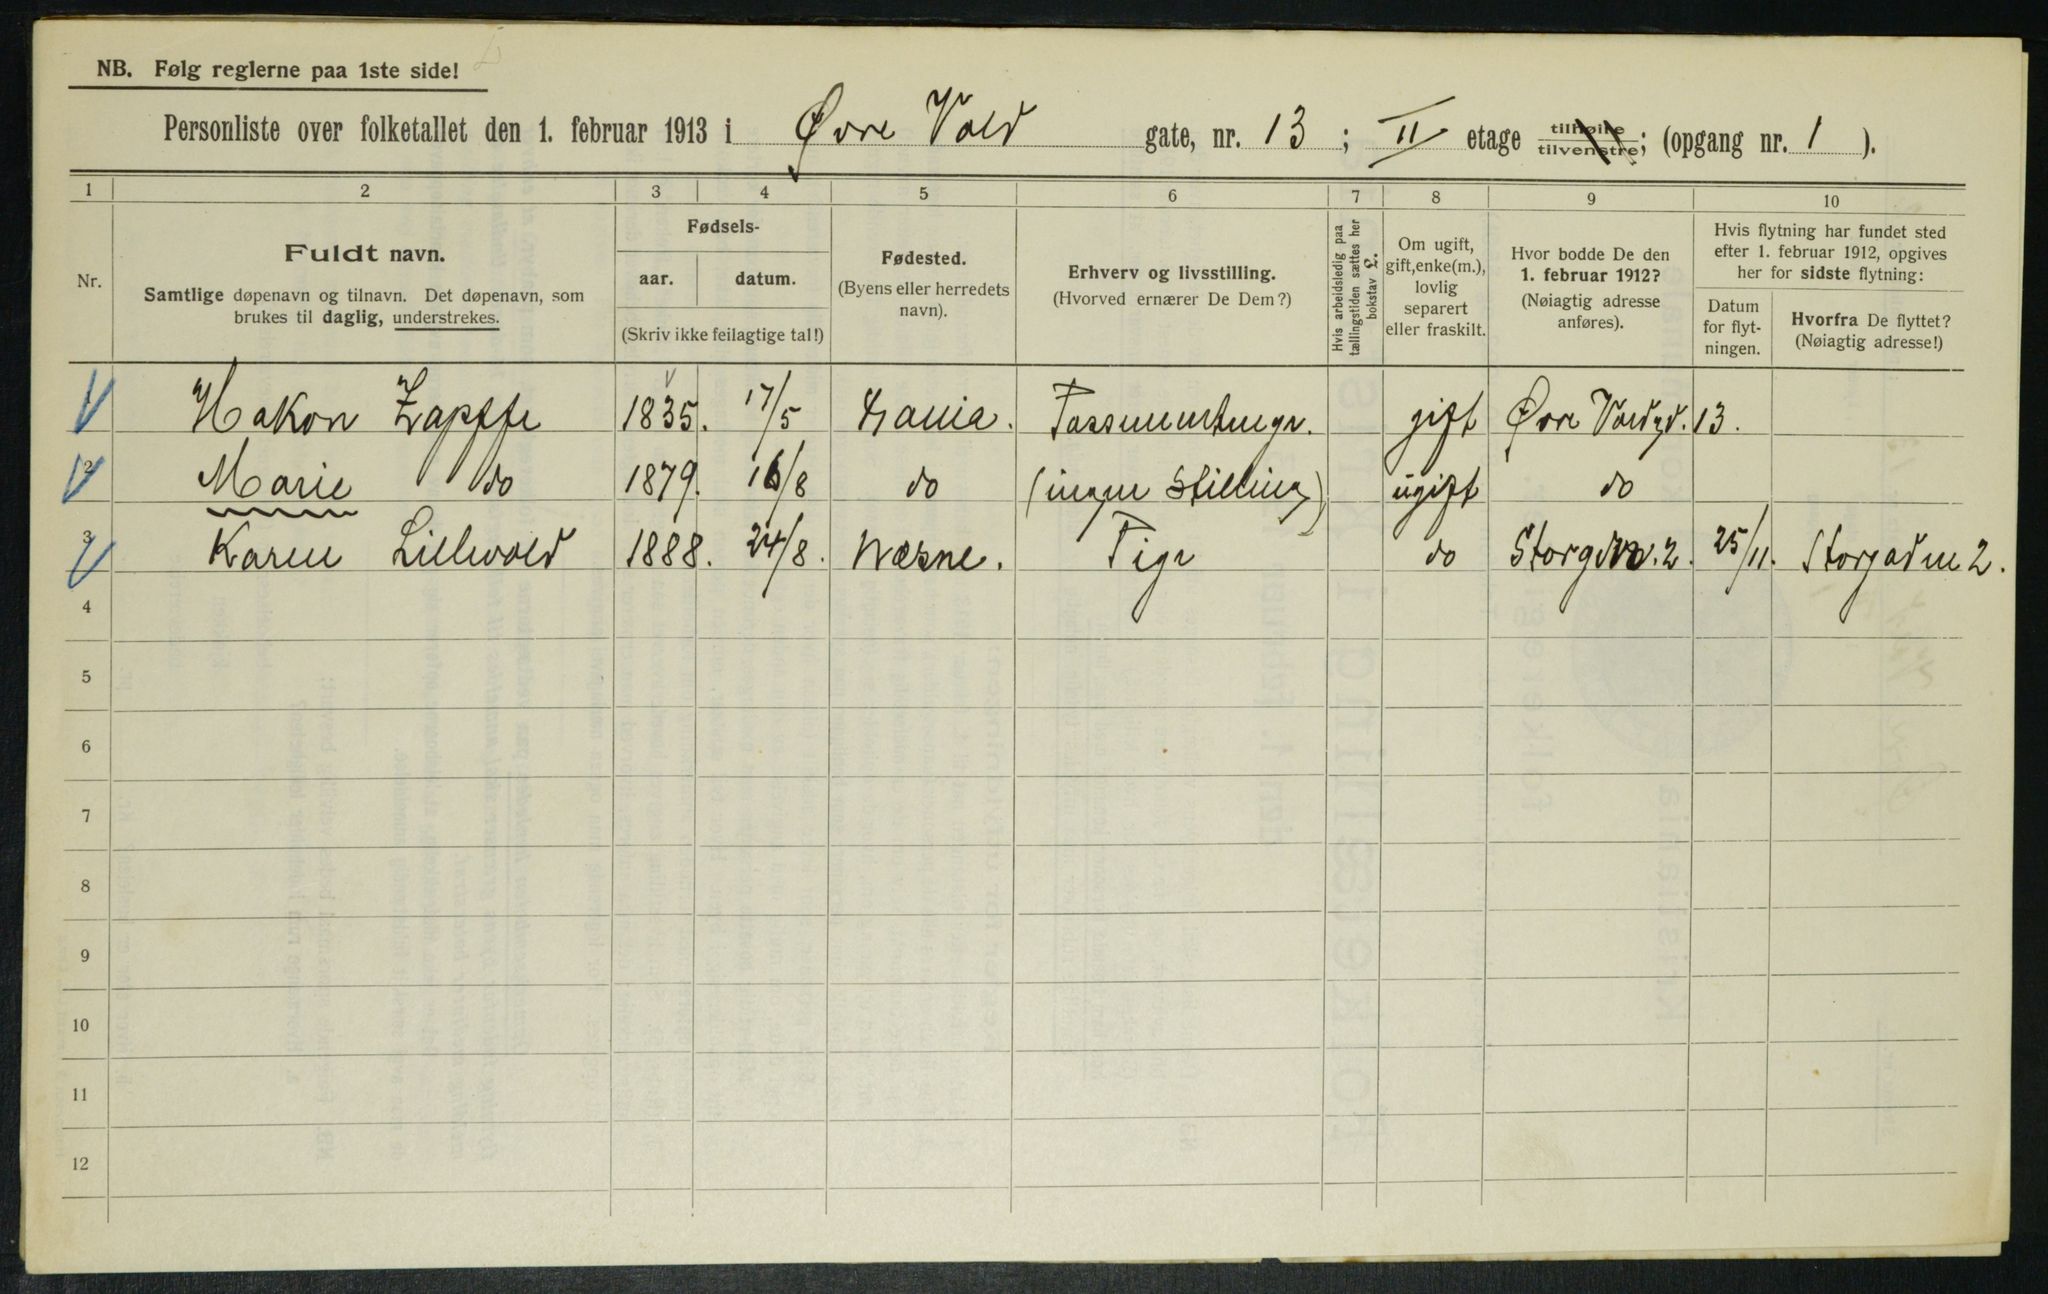 NB. Følg reglerne paa 1ste side!
Personliste over folketallet den 1. februar 1913 i Øvre Vold gate, nr. 13 ; II etage tilhøire tilvenstre; (opgang nr. 1 ).
1 2 3 4 5 6 7 8 9 10
Nr.
Fuldt navn.
Samtlige døpenavn og tilnavn. Det døpenavn, som
brukes til daglig, understrekes.
Fødsels-
aar. datum.
(Skriv ikke feilagtige tal!)
Fødested.
(Byens eller herredets
navn).
Erhverv og livsstilling.
(Hvorved ernærer De Dem?)
Hvis arbeidsledig paa
tællingstiden sættes her
bokstav L.
Om ugift,
gift, enke(m.),
lovlig
separert
eller fraskilt.
Hvor bodde De den
1. februar 1912?
(Nøiagtig adresse
anføres).
Hvis flytning har fundet sted
efter 1. februar 1912, opgives
her for sidste flytning:
Datum
for flyt-
ningen.
Hvorfra De flyttet?
(Nøiagtig adresse!)
Hakon Zapffe 1835. 17/5 gift Øvre Voldgd. 13.
2 Marie do 1879. 16/8 do (ingen Stilling) ugift do
3 Karen Lillevold 1888. 24/8. Næsne. Pige do 2. 25/11. Storgaden 2.
4
5
6
7
8
9
10
11
12